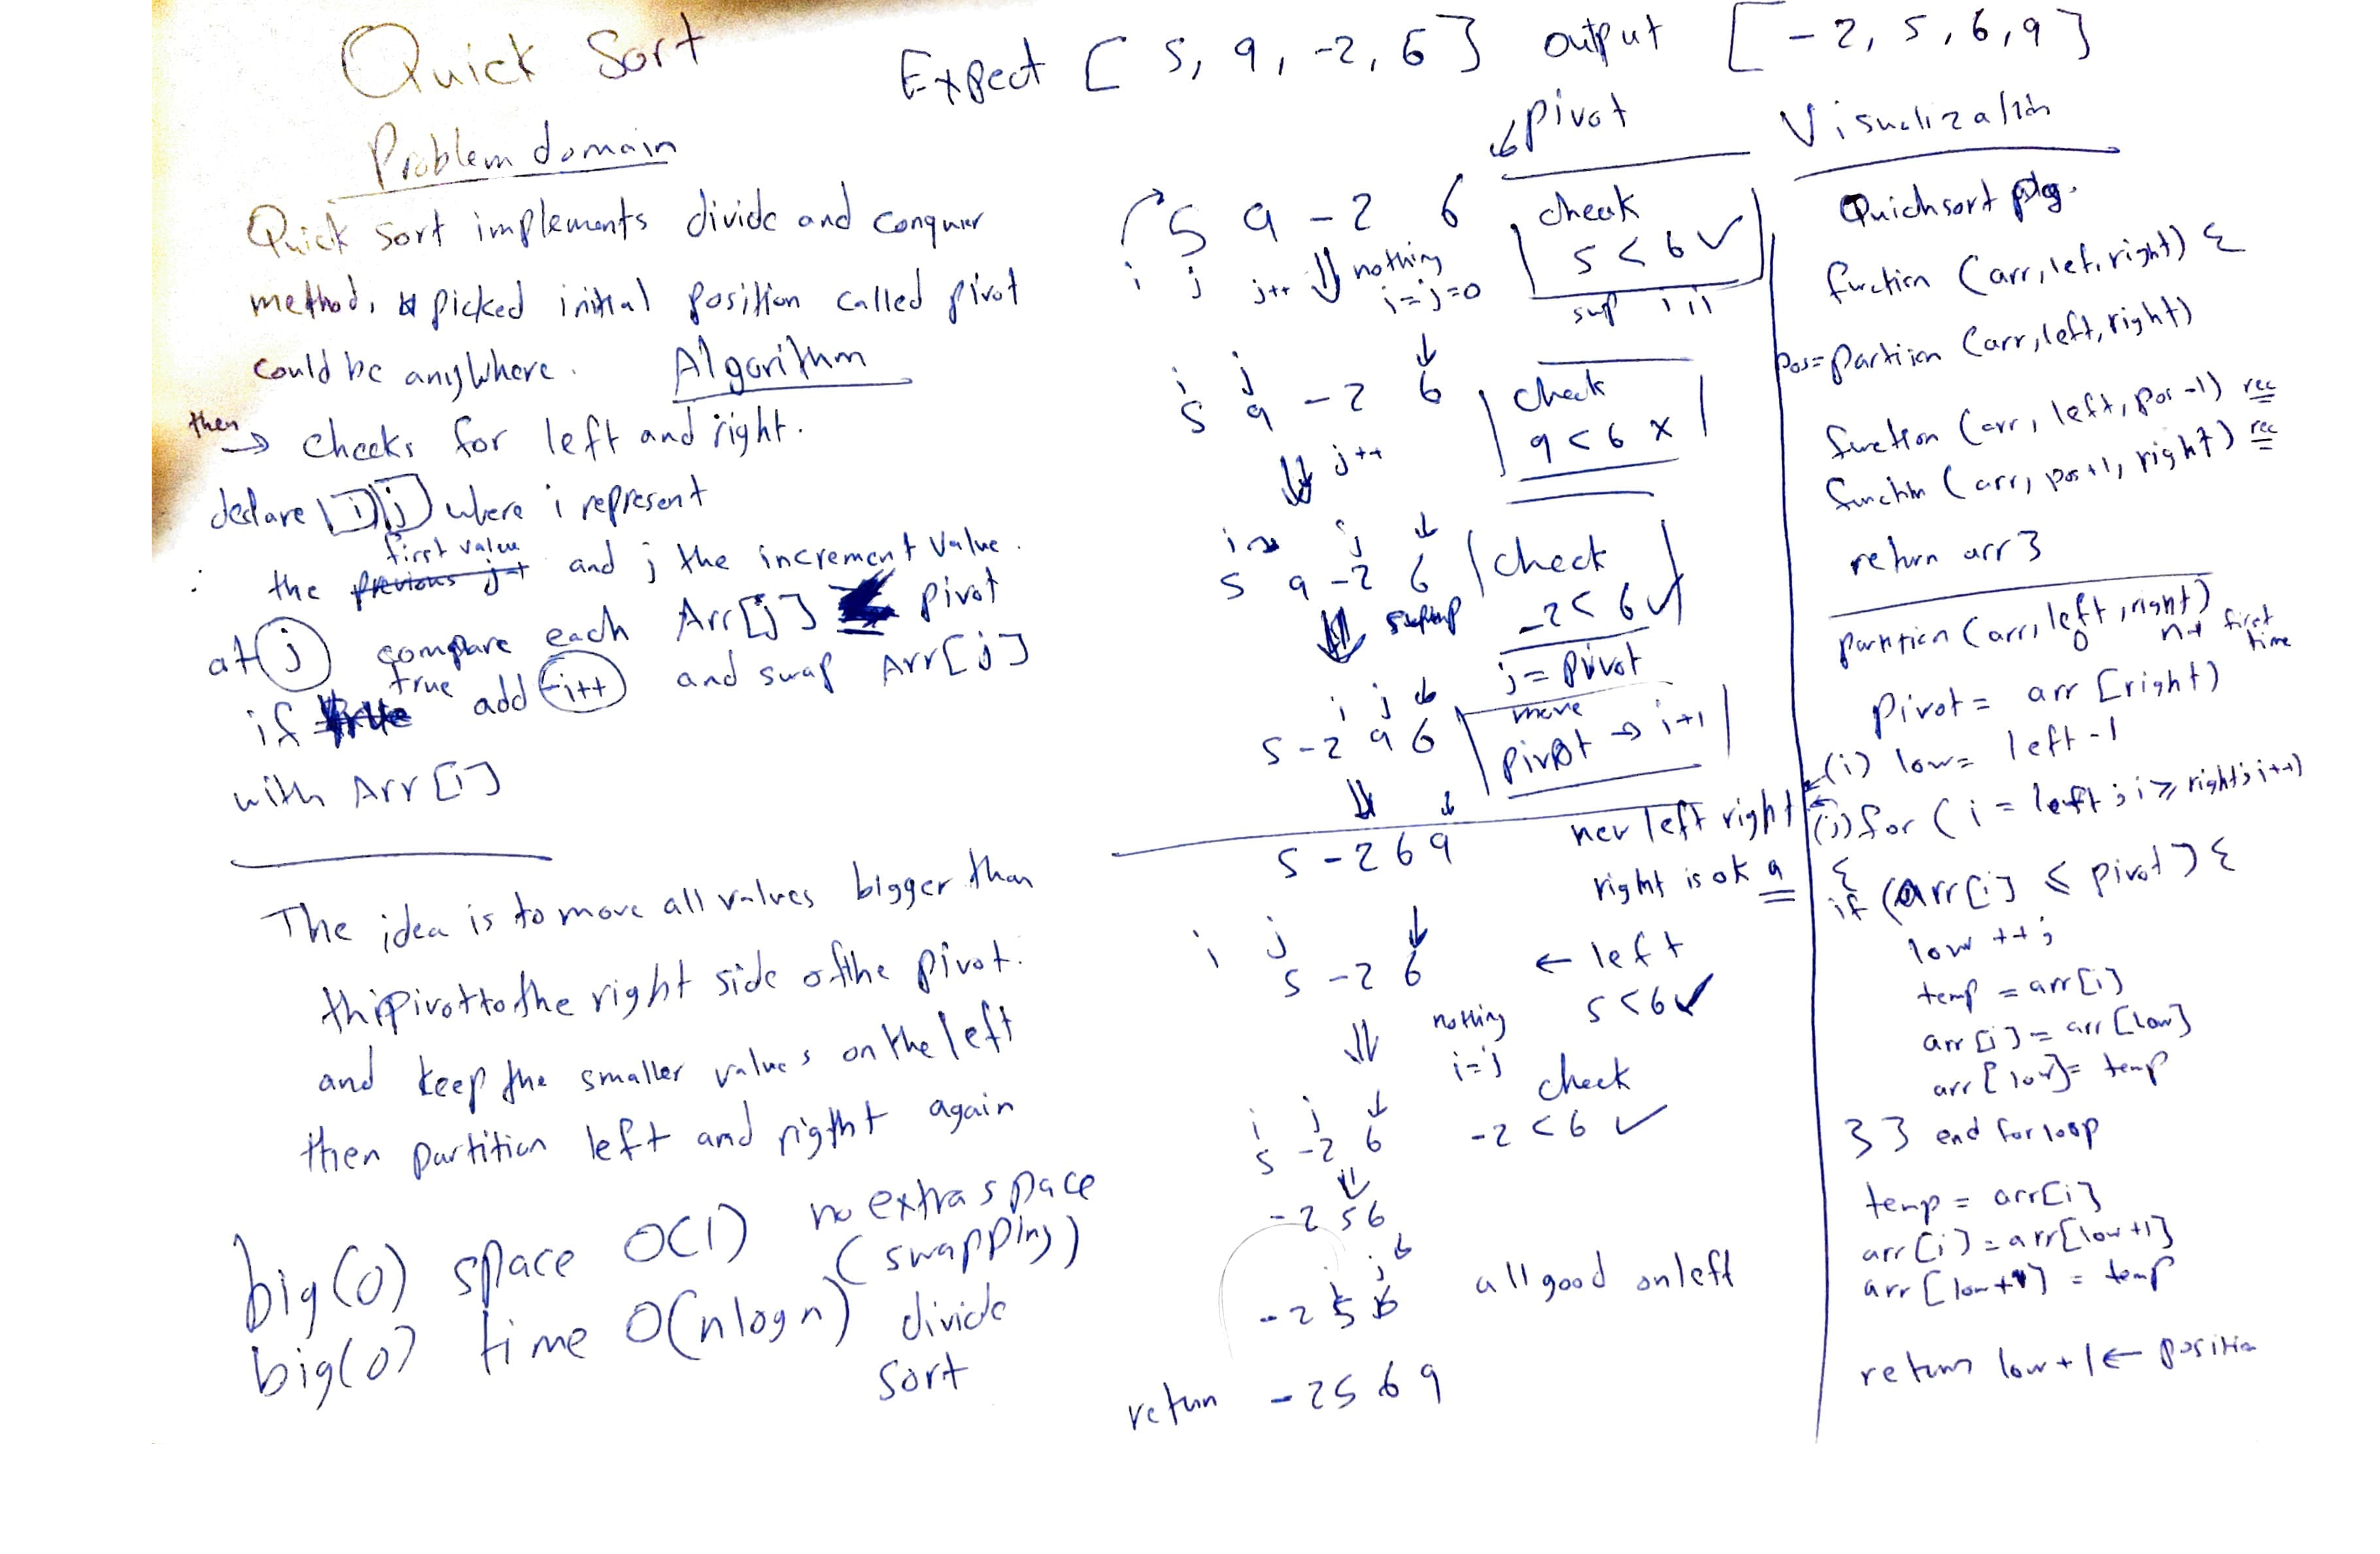 Quick Sort
Expect [ 5, 9, -2, 6 ] output [ -2, 5, 6, 9 ]
Problem domain
Quick sort implements divide and conquer
method, picked initial position called pivot
could be anyWhere.
Algorithm
then
→ checks for left and right.
declare i j where i represent
first value
the previous j+ and j the increment value.
at j compare each Arr[j] ≤ pivot
if true add i++ and swap Arr[j]
with Arr[i]
The idea is to move all values bigger than
the pivot to the right side of the pivot.
and keep the smaller values on the left
then partition left and rigtht again
big(O) space O(1) no extra space
(swapping)
big(O) time O(nlogn) divide
sort
pivot
5 9 -2 6
check
5 < 6 ✓
i j j++ ⇓ nothing
i=j=0
swp i j
i j ↓
5 9 -2 6
check
9 < 6 x
⇓ j++
i j ↓
5 9 -2 6
check
-2 < 6 ✓
⇓
j = pivot
i j ↓
5 -2 9 6
move
pivot → i+1
⇓ ↓
5 -2 6 9
new left right
right is ok 9
i j ↓
5 -2 6
← left
5 < 6 ✓
⇓ nothing
i=j
check
i j ↓
5 -2 6
-2 < 6 ✓
⇓
-2 5 6
i j ↓
-2 5 6
all good on left
return -2 5 6 9
Visualization
Quicksort
function (arr, left, right) {
pos = partiion (arr, left, right)
function (arr, left, pos -1) rec
function (arr, pos+1, right) rec
return arr }
partition (arr, left, right)
0 n-1 first time
pivot = arr [right)
(i) low = left -1
(j) for ( i = left ; i ≥ right; i++)
{
if (arr[i] ≤ pivot ) {
low ++ ;
temp = arr[i]
arr [i] = arr [low]
arr [low] = temp
} } end for loop
temp = arr[i]
arr [i] = arr[low+1]
arr [low+1] = temp
return low + 1 ← position